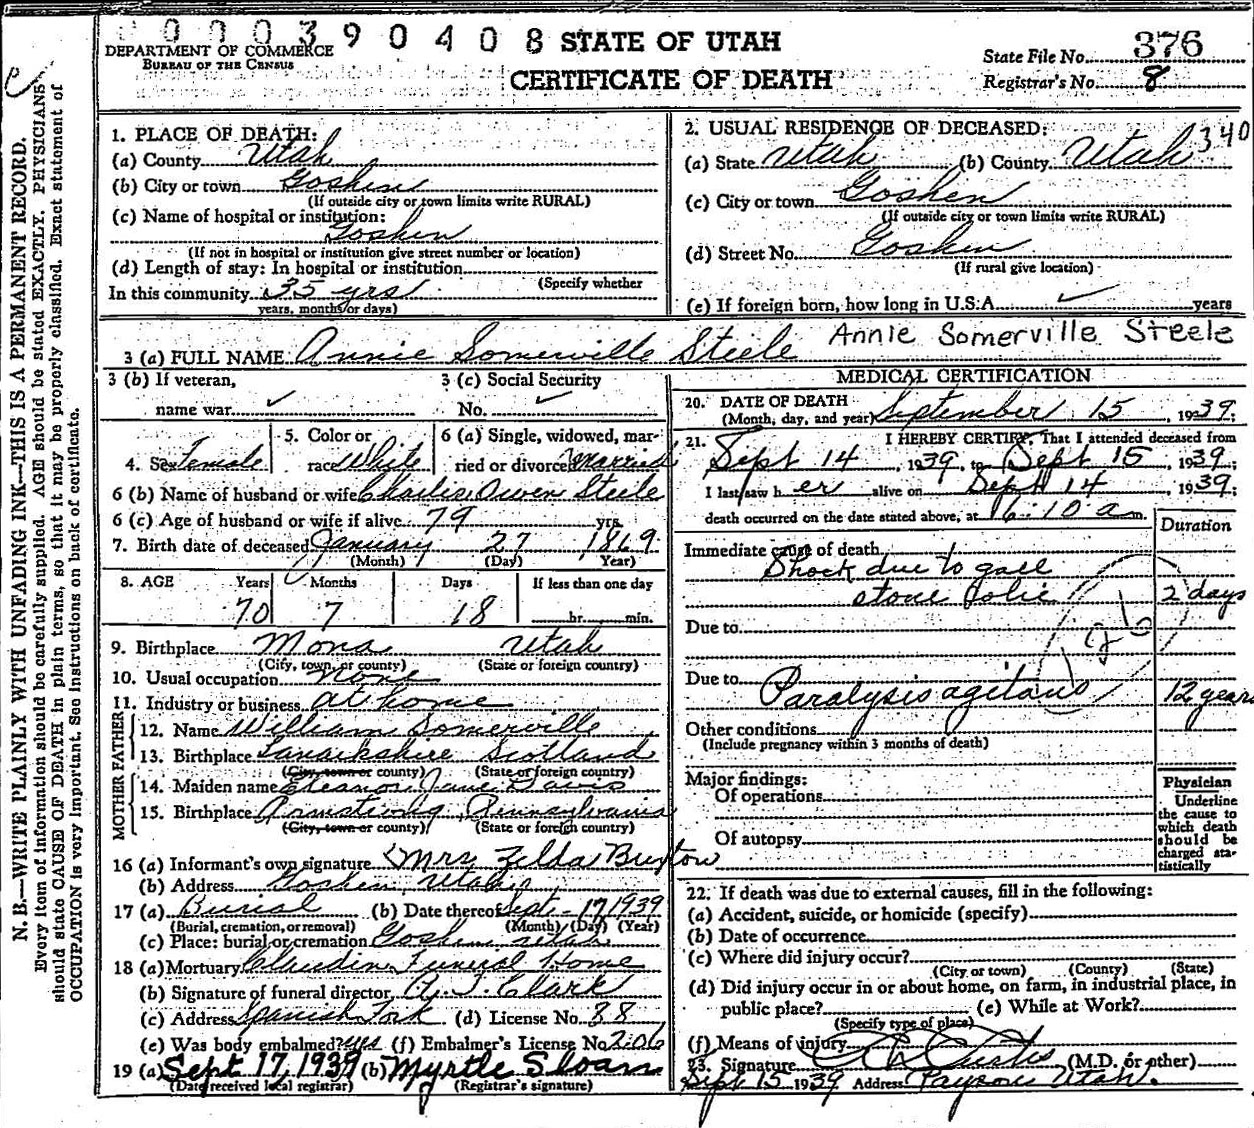 000390408
STATE OF UTAH
CERTIFICATE OF DEATH
DEPARTMENT OF COMMERCE
BUREAU OF THE CENSUS
State File No. 376
Registrar's No. 8
N. B.—WRITE PLAINLY WITH UNFADING INK—THIS IS A PERMANENT RECORD.
Every item of information should be carefully supplied. AGE should be stated EXACTLY. PHYSICIANS
should state CAUSE OF DEATH in plain terms, so that it may be properly classified. Exact statement of
OCCUPATION is very important. See instructions on back of certificate.
1. PLACE OF DEATH:
(a) County Utah
(b) City or town Goshen
(If outside city or town limits write RURAL)
(c) Name of hospital or institution:
Goshen
(If not in hospital or institution give street number or location)
(d) Length of stay: In hospital or institution
(Specify whether
In this community 35 yrs
years, months or days)
2. USUAL RESIDENCE OF DECEASED: 340
(a) State Utah (b) County Utah
(c) City or town Goshen
(If outside city or town limits write RURAL)
(d) Street No. Goshen
(If rural give location)
(e) If foreign born, how long in U.S.A. ✓ years
3 (a) FULL NAME Annie Somerville Steele Annie Somerville Steele
3 (b) If veteran,
name war ✓
3 (c) Social Security
No. ✓
4. Sex Female
5. Color or
race White
6 (a) Single, widowed, mar-
ried or divorced Married
6 (b) Name of husband or wife Charles Owen Steele
6 (c) Age of husband or wife if alive 79 yrs.
7. Birth date of deceased January 27 1869
(Month) (Day) (Year)
8. AGE Years Months Days If less than one day
70 7 18 hr. min.
9. Birthplace Mona Utah
(City, town, or county) (State or foreign country)
10. Usual occupation none
11. Industry or business at home
FATHER
12. Name William Somerville
13. Birthplace Lanarkshire Scotland
(City, town or county) (State or foreign country)
MOTHER
14. Maiden name Eleanor Jane Davis
15. Birthplace Armstrong Pennsylvania
(City, town or county) (State or foreign country)
16 (a) Informant's own signature Mrs Zelda Buxton
(b) Address Goshen, Utah
17 (a) Burial (b) Date thereof Sept - 17 1939
(Burial, cremation, or removal) (Month) (Day) (Year)
(c) Place: burial or cremation Goshen Utah
18 (a) Mortuary Claudin Funeral Home
(b) Signature of funeral director A. J. Clark
(c) Address Spanish Fork (d) License No. 88
(e) Was body embalmed? yes (f) Embalmer's License No. 206
19 (a) Sept 17, 1939 (b) Myrtle Sloan
(Date received local registrar) (Registrar's signature)
MEDICAL CERTIFICATION
20. DATE OF DEATH
(Month, day, and year) September 15, 1939;
21. I HEREBY CERTIFY, That I attended deceased from
Sept 14, 1939, to Sept 15, 1939;
I last saw h er alive on Sept 14, 1939;
death occurred on the date stated above, at 6:10 a m.
Duration
Immediate cause of death
Shock due to gall
stone colic 2 days
Due to
Due to Paralysis agitans 12 years
Other conditions
(Include pregnancy within 3 months of death)
Major findings:
Of operations
Of autopsy
Physician
Underline
the cause to
which death
should be
charged sta-
tistically
22. If death was due to external causes, fill in the following:
(a) Accident, suicide, or homicide (specify)
(b) Date of occurrence
(c) Where did injury occur?
(City or town) (County) (State)
(d) Did injury occur in or about home, on farm, in industrial place, in
public place? (e) While at Work?
(Specify type of place)
(f) Means of injury
23. Signature Curtis (M.D. or other)
Sept 15 1939 Address Payson Utah.